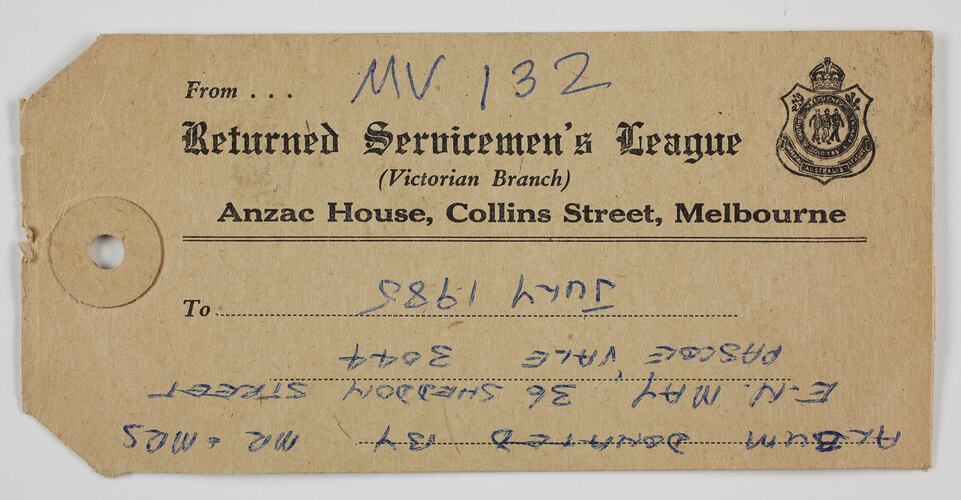 From . . . MV 132
Returned Servicemen's League
(Victorian Branch)
Anzac House, Collins Street, Melbourne
To
ALBUM DONATED BY MR & MRS
E.N. MAY, 36 SHEDDON STREET
PASCOE VALE 3044
JULY 1985